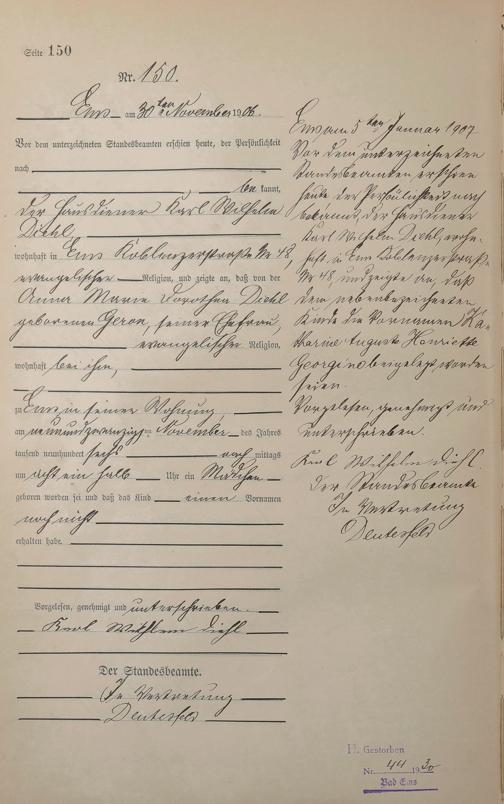 Seite 150
Nr. 150.
Ems am 30ten November 1906.
Vor dem unterzeichneten Standesbeamten erschien heute, der Persönlichkeit
nach
be kannt,
der Hausdiener Karl Wilhelm
Diehl,
wohnhaft in Ems Koblenzerstraße Nr 48,
evangelischer Religion, und zeigte an, daß von der
Anna Marie Dorothea Diehl
geborenen Geron, seiner Ehefrau,
evangelischer Religion,
wohnhaft bei ihm,
zu Ems, in seiner Wohnung,
am neunundzwanzigten November des Jahres
tausend neunhundert sechs nach mittags
um acht ein halb Uhr ein Mädchen
geboren worden sei und daß das Kind einen Vornamen
noch nicht
erhalten habe.
Vorgelesen, genehmigt und unterschrieben.
Karl Wilhelm Diehl
Der Standesbeamte.
In Vertretung
Ems am 5ten Januar 1907
Vor dem unterzeichneten
Standesbeamten erschien
heute der Persönlichkeit nach
bekannt, der Hausdiener
Karl Wilhelm Diehl, wohn-
haft in Ems Koblenzerstraße
Nr 48, und zeigte an, daß
dem nebenbezeichneten
Kinde die Vornamen Ka-
tharine Auguste Henriette
Georgine beigelegt worden
seien.
Vorgelesen, genehmigt und
unterschrieben.
Karl Wilhelm Diehl
Der Standesbeamte
In Vertretung
H. Gestorben
Nr. 44 1930
Bad Ems